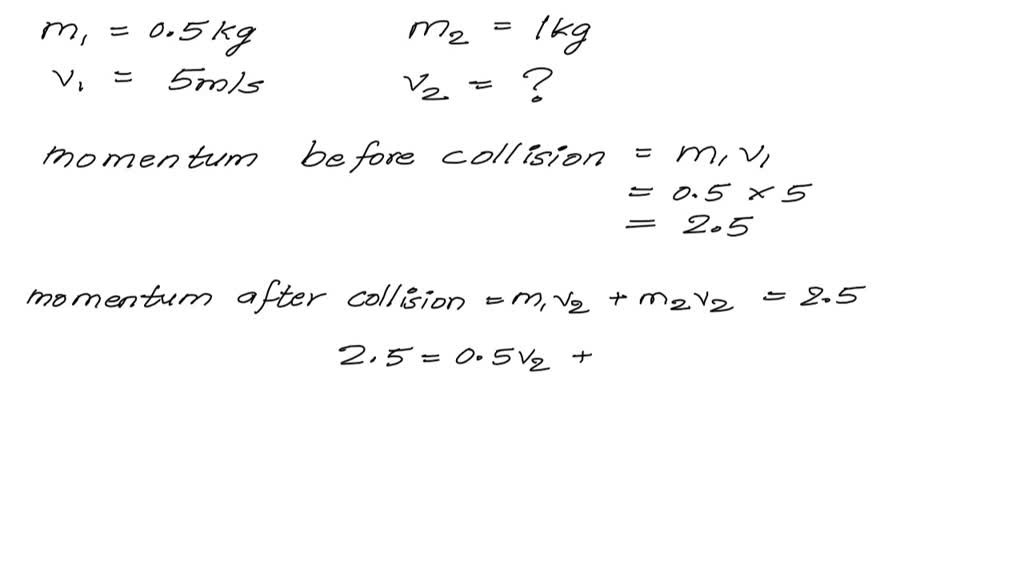 m₁ = 0.5kg m₂ = 1kg
v₁ = 5m/s v₂ = ?
momentum before collision = m₁v₁
= 0.5 × 5
= 2.5
momentum after collision = m₁v₂ + m₂v₂ = 2.5
2.5 = 0.5v₂ +